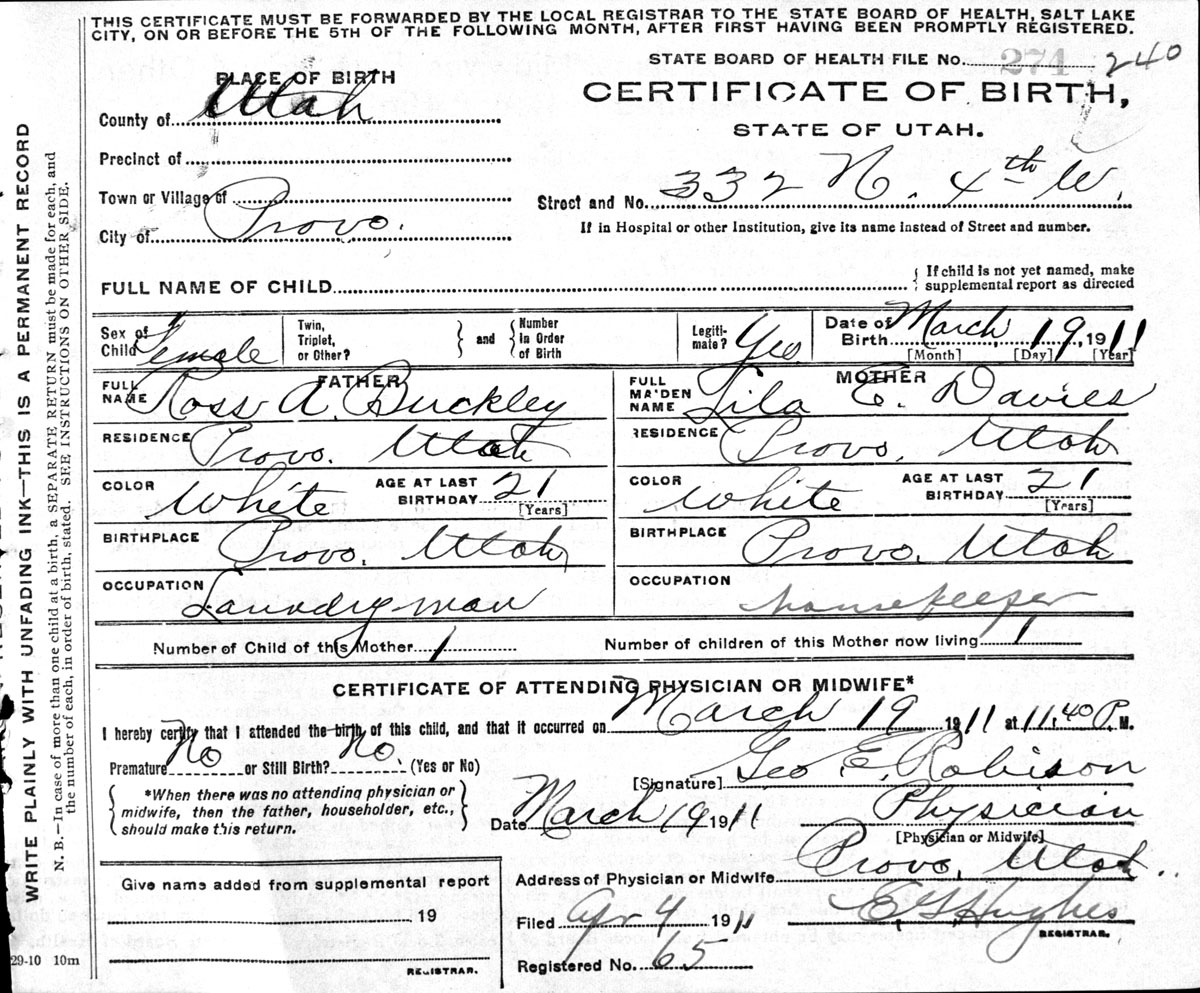 THIS CERTIFICATE MUST BE FORWARDED BY THE LOCAL REGISTRAR TO THE STATE BOARD OF HEALTH, SALT LAKE
CITY, ON OR BEFORE THE 5TH OF THE FOLLOWING MONTH, AFTER FIRST HAVING BEEN PROMPTLY REGISTERED.
STATE BOARD OF HEALTH FILE No. 274 240
PLACE OF BIRTH
CERTIFICATE OF BIRTH,
County of Utah
STATE OF UTAH.
Precinct of
Town or Village of
Street and No. 332 N. 4th W.
City of Provo.
If in Hospital or other Institution, give its name instead of Street and number.
FULL NAME OF CHILD { If child is not yet named, make
supplemental report as directed
Sex of Child Female Twin, Triplet, or Other? } and { Number in Order of Birth Legiti-mate? Yes Date of Birth March 19, 1911
[Month] [Day] [Year]
FATHER
FULL NAME Ross A. Buckley
RESIDENCE Provo. Utah
COLOR White AGE AT LAST BIRTHDAY 21
[Years]
BIRTHPLACE Provo. Utah
OCCUPATION Laundryman
MOTHER
FULL MA'DEN NAME Lila E. Davies
RESIDENCE Provo, Utah
COLOR White AGE AT LAST BIRTHDAY 21
[Years]
BIRTHPLACE Provo, Utah
OCCUPATION housekeeper
Number of Child of this Mother 1 Number of children of this Mother now living 1
CERTIFICATE OF ATTENDING PHYSICIAN OR MIDWIFE*
I hereby certify that I attended the birth of this child, and that it occurred on March 19 1911 at 11:40 P. M.
Premature No or Still Birth? No. (Yes or No)
[Signature] Geo. E. Robison
{ *When there was no attending physician or
midwife, then the father, householder, etc.,
should make this return. }
Date March 19 1911 Physician
[Physician or Midwife]
Address of Physician or Midwife Provo, Utah
Give name added from supplemental report
19
REGISTRAR.
Filed Apr 4 1911 E G Hughes
REGISTRAR.
Registered No. 65
29-10 10m
WRITE PLAINLY WITH UNFADING INK—THIS IS A PERMANENT RECORD
N. B.—In case of more than one child at a birth, a SEPARATE RETURN must be made for each, and
the number of each, in order of birth, stated. SEE INSTRUCTIONS ON OTHER SIDE.